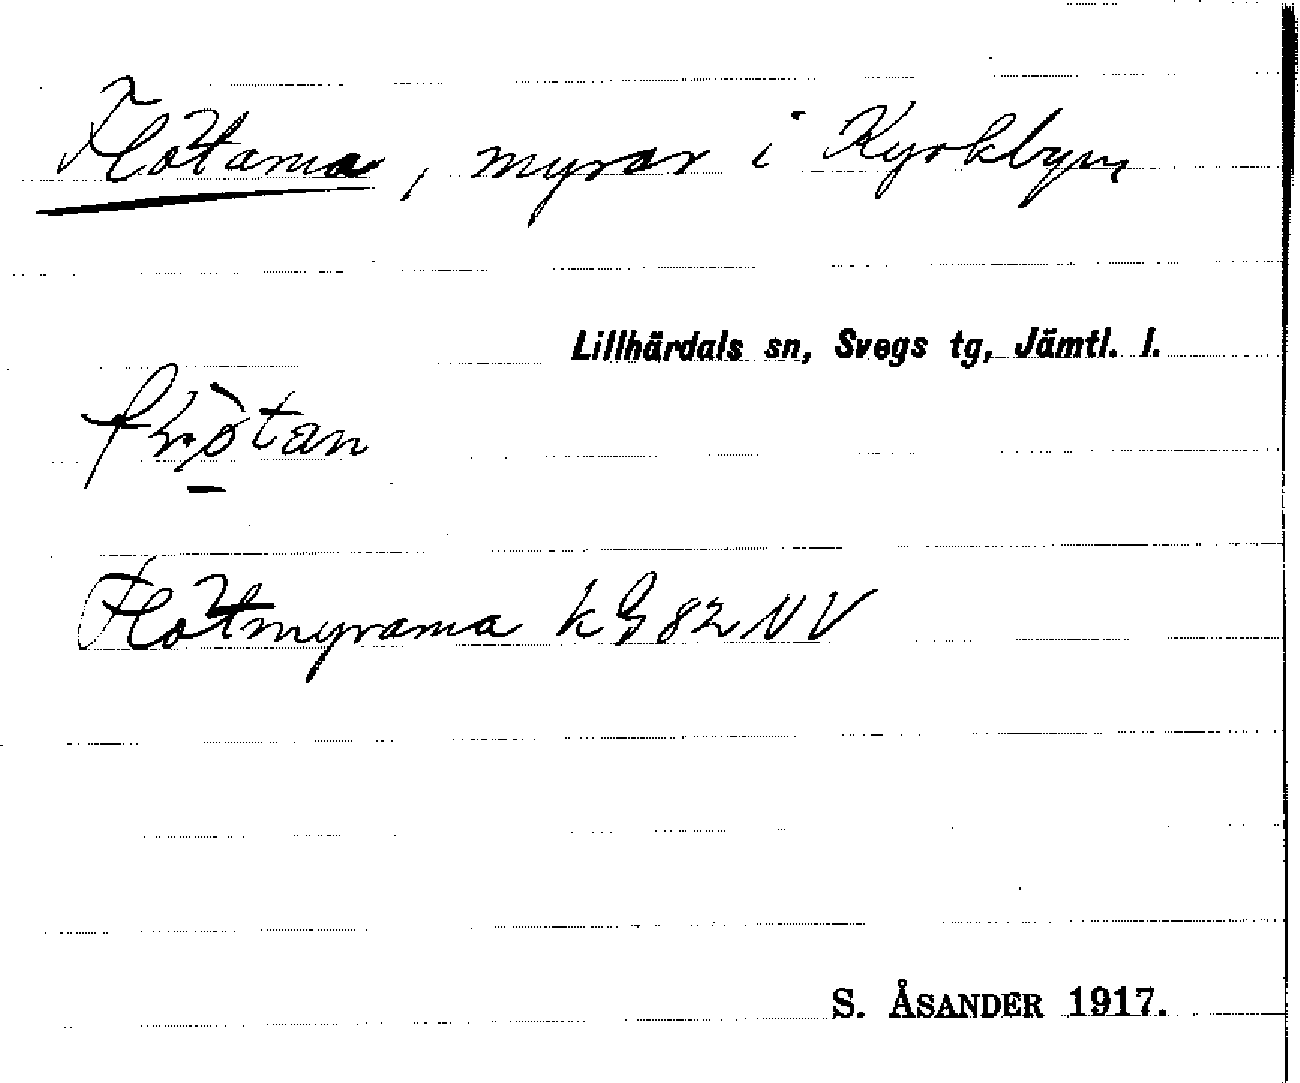 Flötama, myrar i Kyrkbyn
Lillhärdals sn, Svegs tg, Jämtl. l.
Flötmyrama k G 82 NV
S. ÅSANDER 1917.